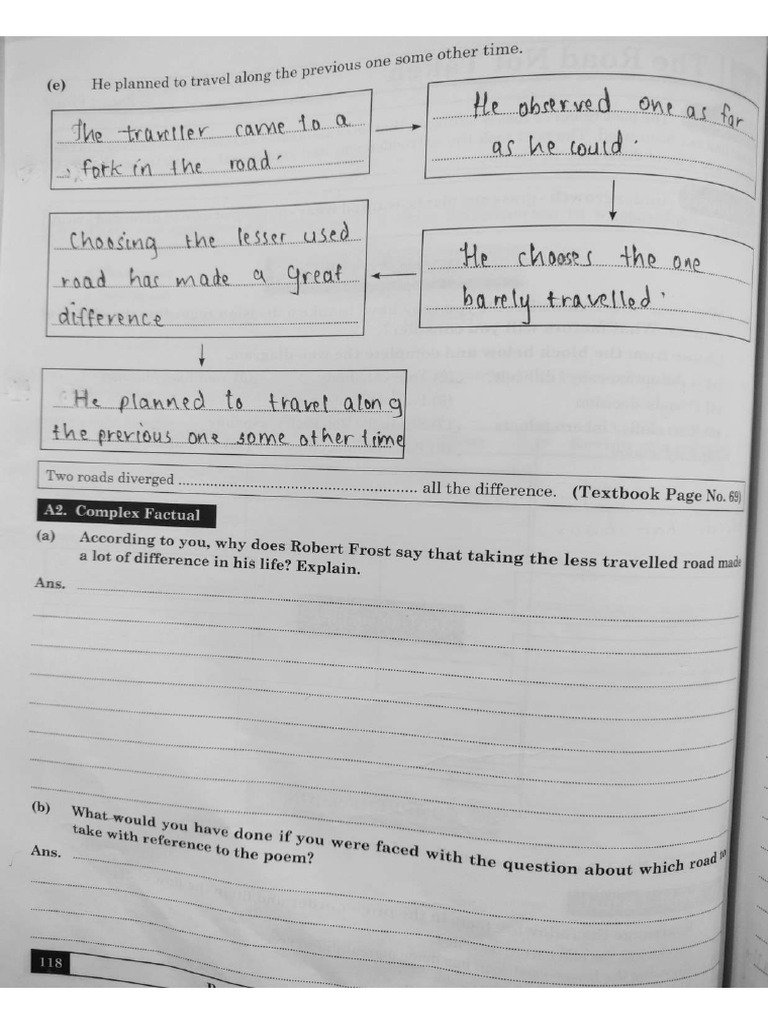 (e) He planned to travel along the previous one some other time.
The traveller came to a
fork in the road.
He observed one as far
as he could.
He chooses the one
barely travelled.
Choosing the lesser used
road has made a great
difference
He planned to travel along
the previous one some other time
Two roads diverged ............................................................ all the difference. (Textbook Page No. 69)
A2. Complex Factual
(a) According to you, why does Robert Frost say that taking the less travelled road made
a lot of difference in his life? Explain.
Ans.
(b) What would you have done if you were faced with the question about which road to
take with reference to the poem?
Ans.
118